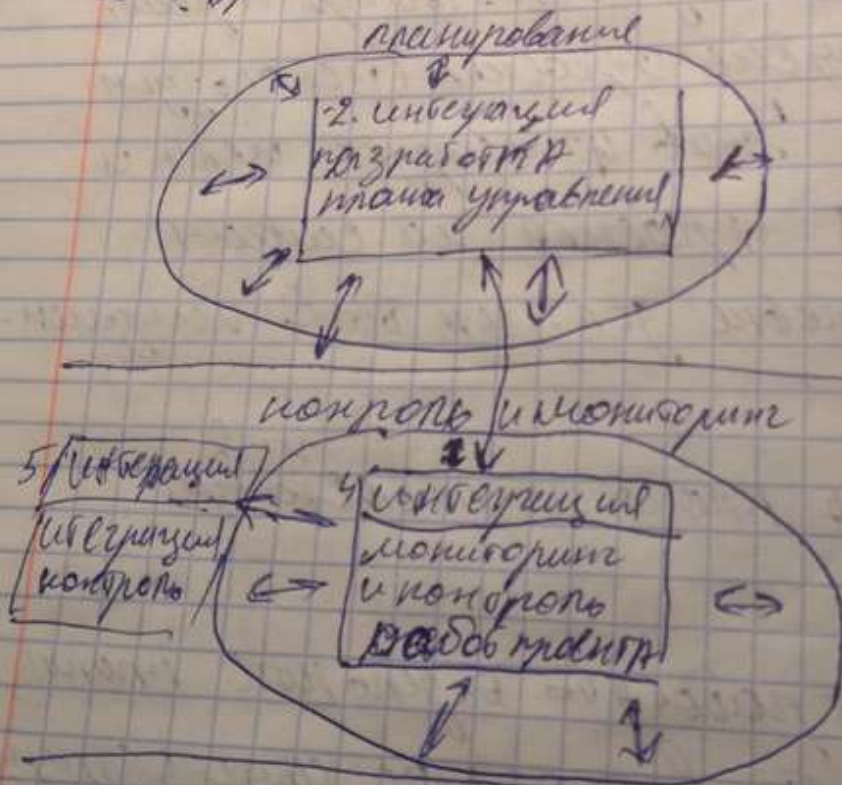 планирование
2. интеграция
разработка
плана управления
контроль и мониторинг
5 интеграция
итеграция
контроль
4 интеграция
мониторинг
и контроль
работ проекта